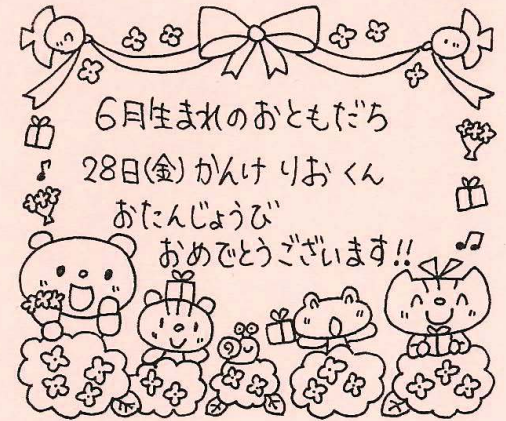 6月生まれのおともだち
28日(金)かんけ りお くん
おたんじょうび
おめでとうございます!!